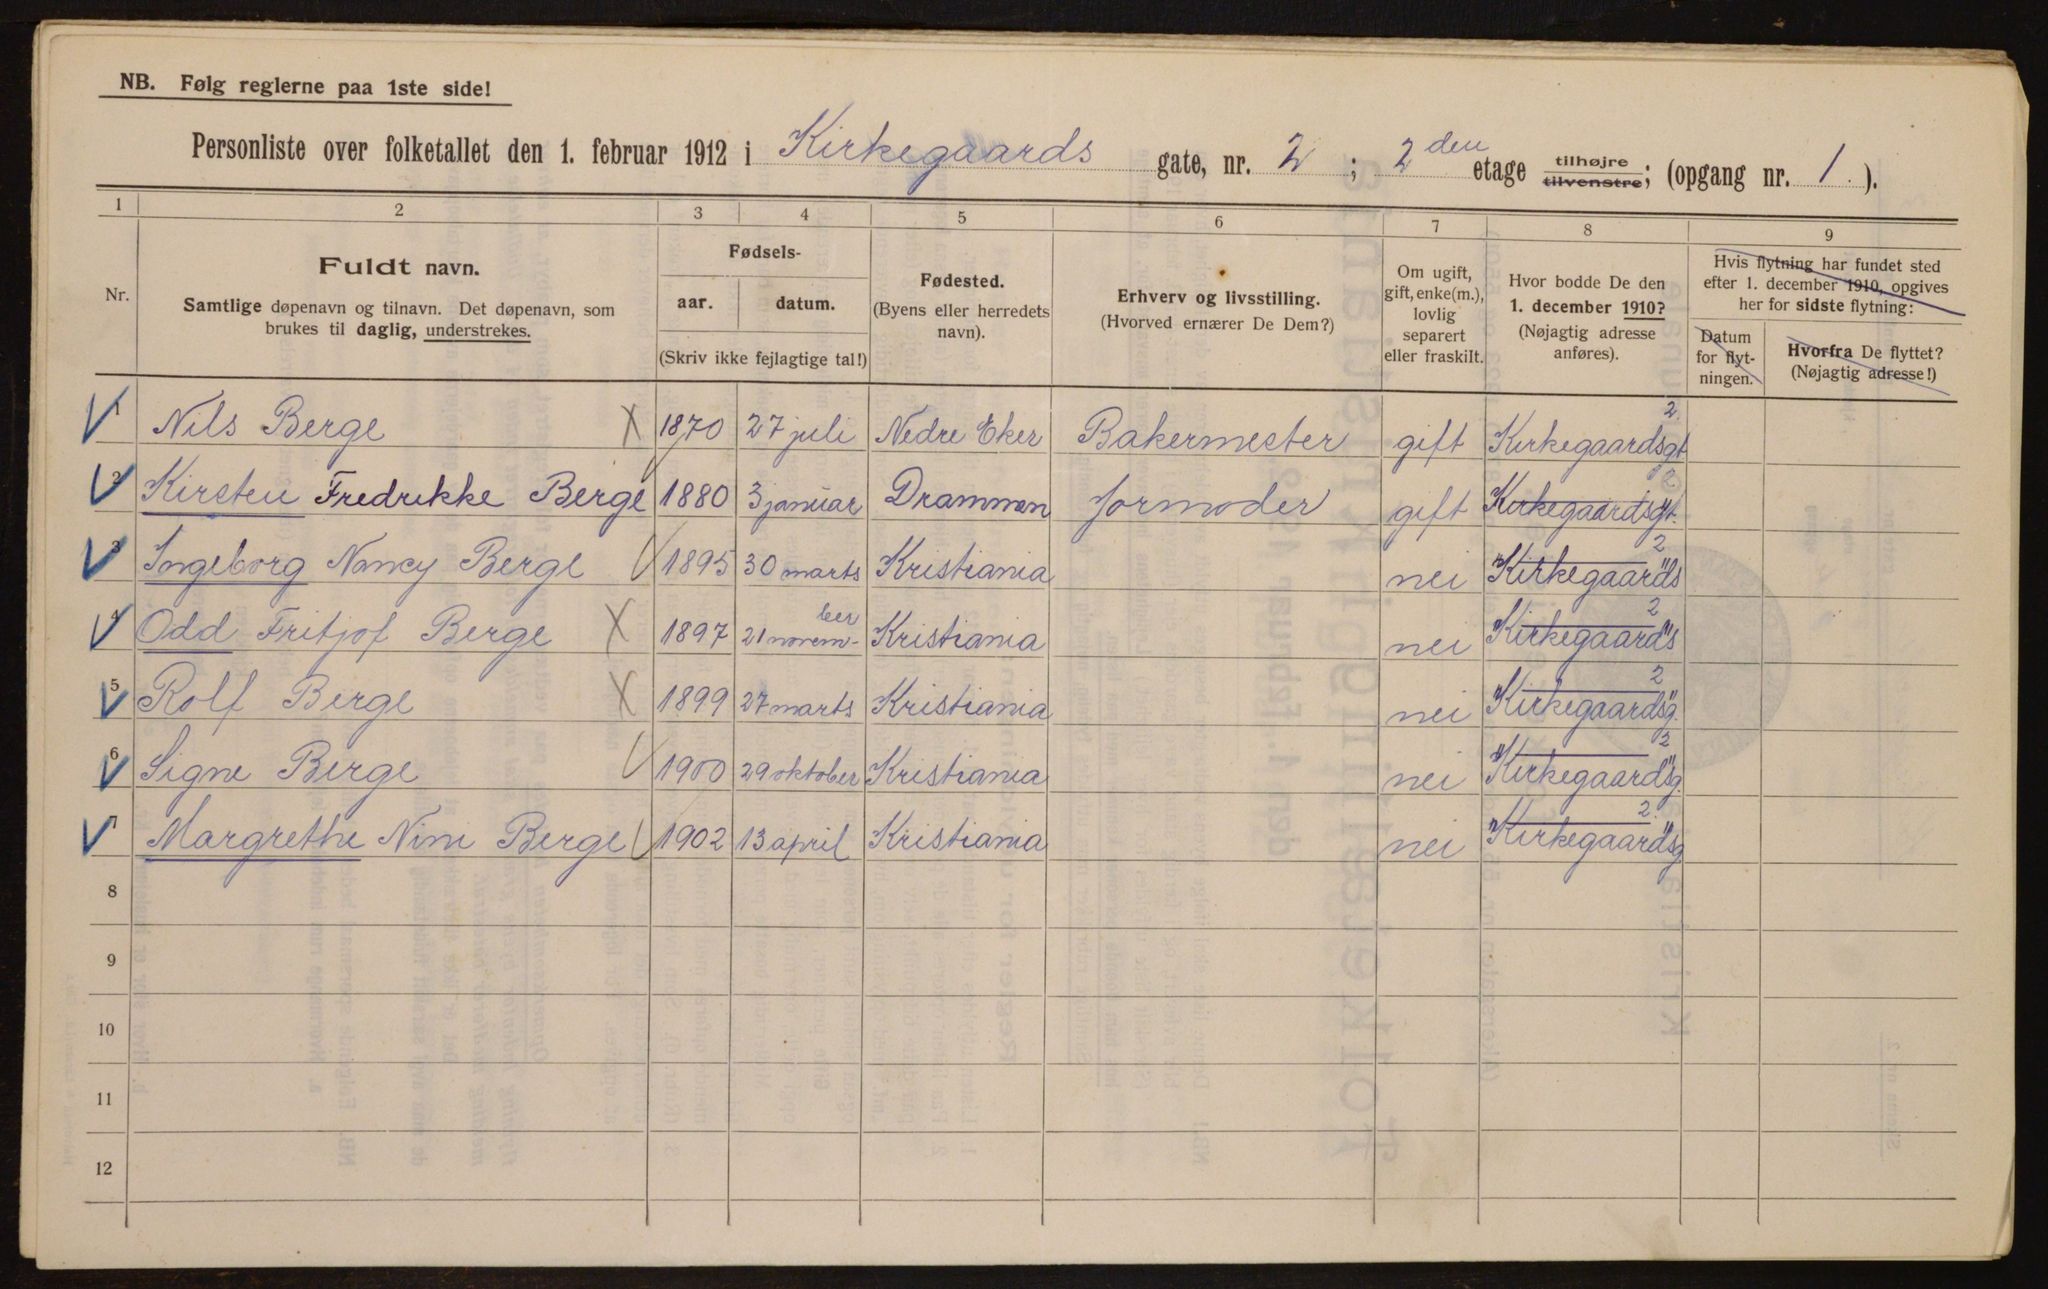 NB. Følg reglerne paa 1ste side!
Personliste over folketallet den 1. februar 1912 i Kirkegaards gate, nr. 2 ; 2den etage tilhøjre tilvenstre; (opgang nr. 1 ).
1 2 3 4 5 6 7 8 9
Nr.
Fuldt navn.
Samtlige døpenavn og tilnavn. Det døpenavn, som
brukes til daglig, understrekes.
Fødsels-
aar. datum.
(Skriv ikke fejlagtige tal!)
Fødested.
(Byens eller herredets
navn).
Erhverv og livsstilling.
(Hvorved ernærer De Dem?)
Om ugift,
gift, enke(m.),
lovlig
separert
eller fraskilt.
Hvor bodde De den
1. december 1910?
(Nøjagtig adresse
anføres).
Hvis flytning har fundet sted
efter 1. december 1910, opgives
her for sidste flytning:
Datum
for flyt-
ningen.
Hvorfra De flyttet?
(Nøjagtig adresse!)
1 Nils Berge 1870 27 juli Nedre Eker Bakermester gift Kirkegaardsgt 2.
2 Kirsten Fredrikke Berge 1880 3 januar Drammen Jormoder gift Kirkegaardsgt. 2
3 Ingeborg Nancy Berge 1895 30 marts Kristiania nei Kirkegaards 2
4 Odd Fritjof Berge 1897 21 november Kristiania nei Kirkegaards 2
5 Rolf Berge 1899 27 marts Kristiania nei Kirkegaardsg. 2
6 Signe Berge 1900 29 oktober Kristiania nei Kirkegaardsg. 2
7 Margrethe Nini Berge 1902 13 april Kristiania nei Kirkegaardsg 2.
8
9
10
11
12